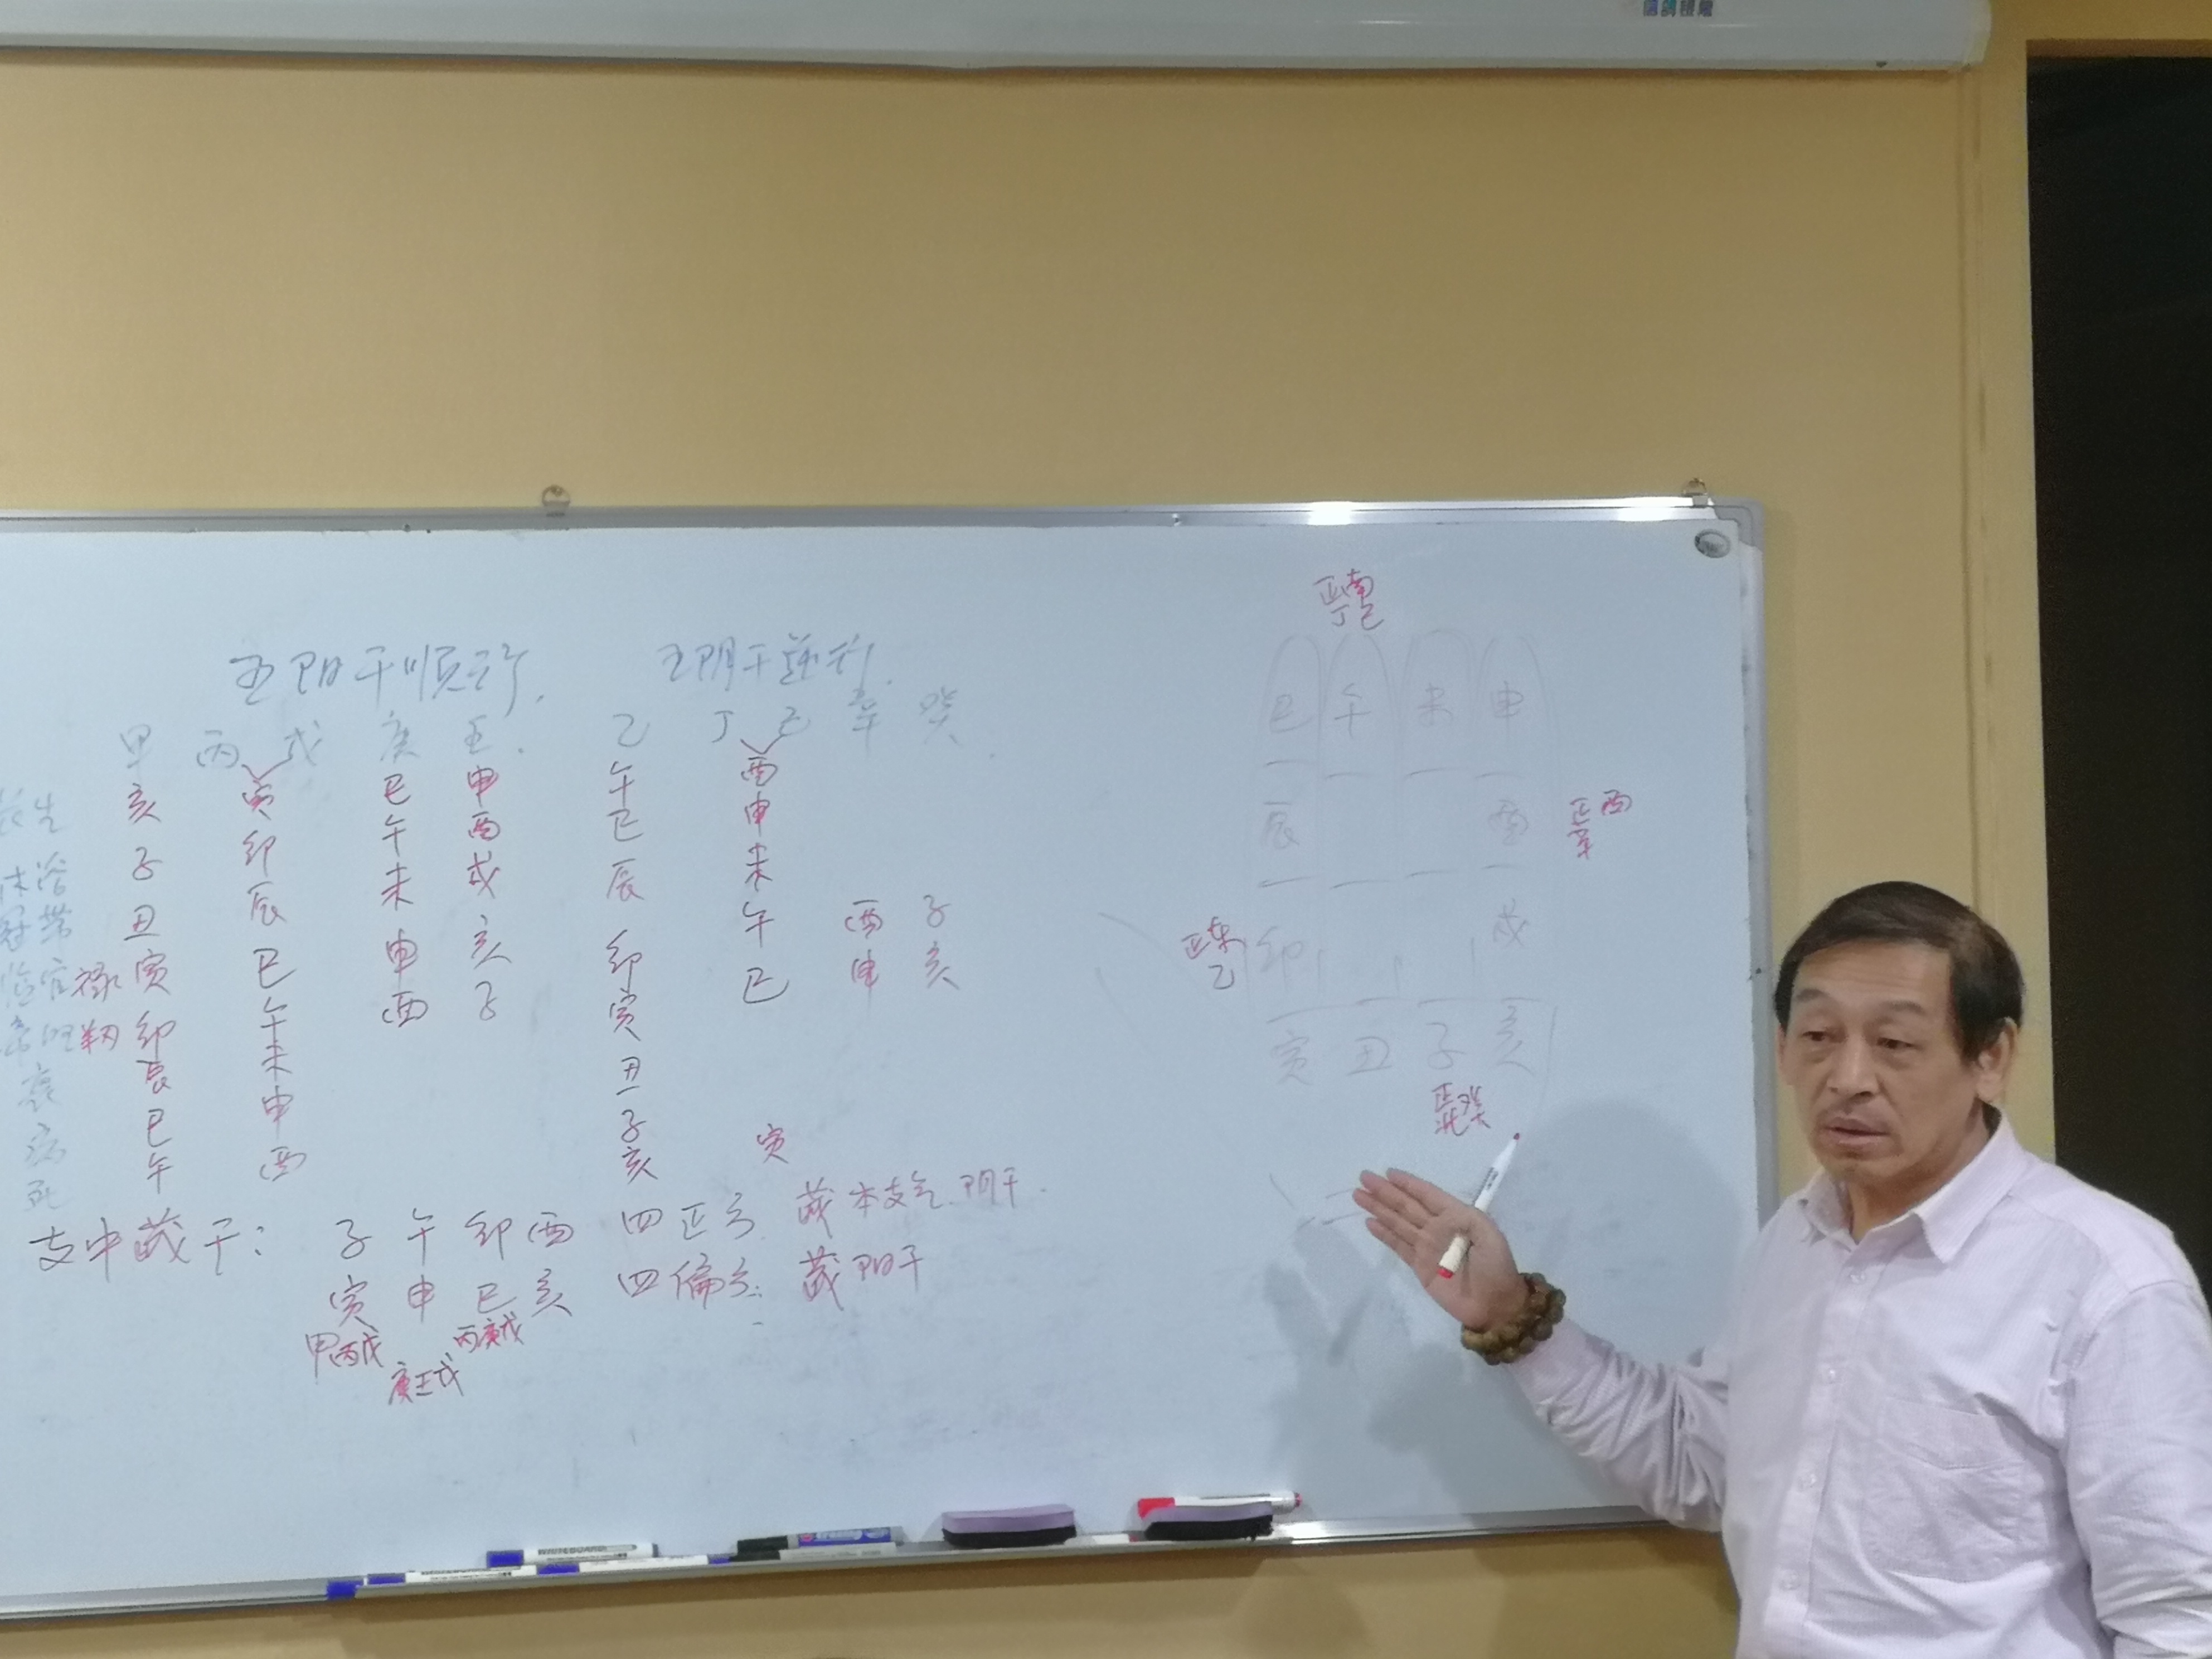 五阳干顺行.
五阴干逆行.
甲 丙 戊 庚 壬. 乙 丁 己 辛 癸.
长生 亥 寅 巳 申 午 酉
沐浴 子 卯 午 酉 巳 申
冠带 丑 辰 未 戌 辰 未
临官 禄 寅 巳 申 亥 卯 午 酉 子
帝旺 羊刃 卯 午 酉 子 寅 巳 申 亥
衰 辰 未 丑
病 巳 申 子 寅
死 午 酉 亥
支中藏干: 子 午 卯 酉 四正方. 藏本支气. 阴干.
寅 申 巳 亥 四偏方: 藏阳干
甲丙戊 庚壬戊 丙庚戊
正南
丁己
巳 午 未 申
辰 酉
正西
辛
正东
乙
卯 戌
寅 丑 子 亥
正北 癸
WHITEBOARD